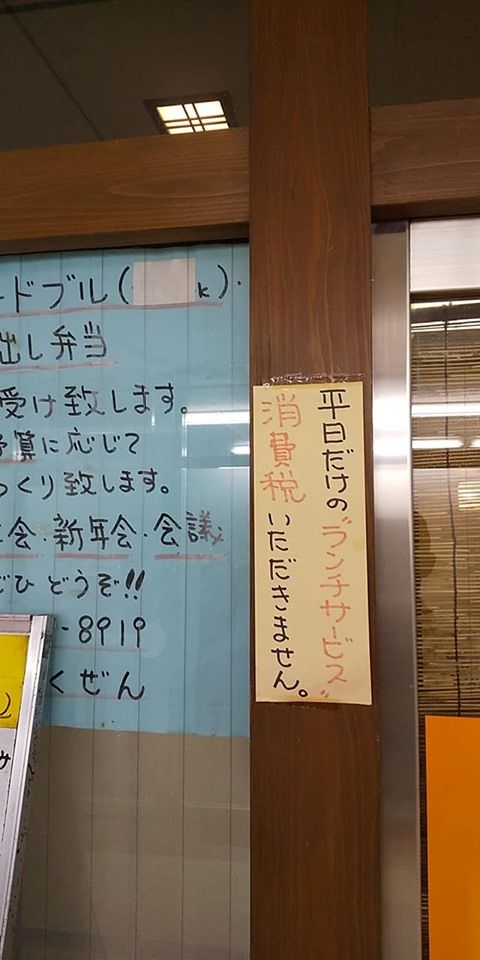 ードブル( k)・
出し弁当
受け致します。
予算に応じて
っくり致します。
会・新年会・会議
ぜひどうぞ!!
-8919
くぜん
平日だけの"ランチサービス"
消費税いただきません。